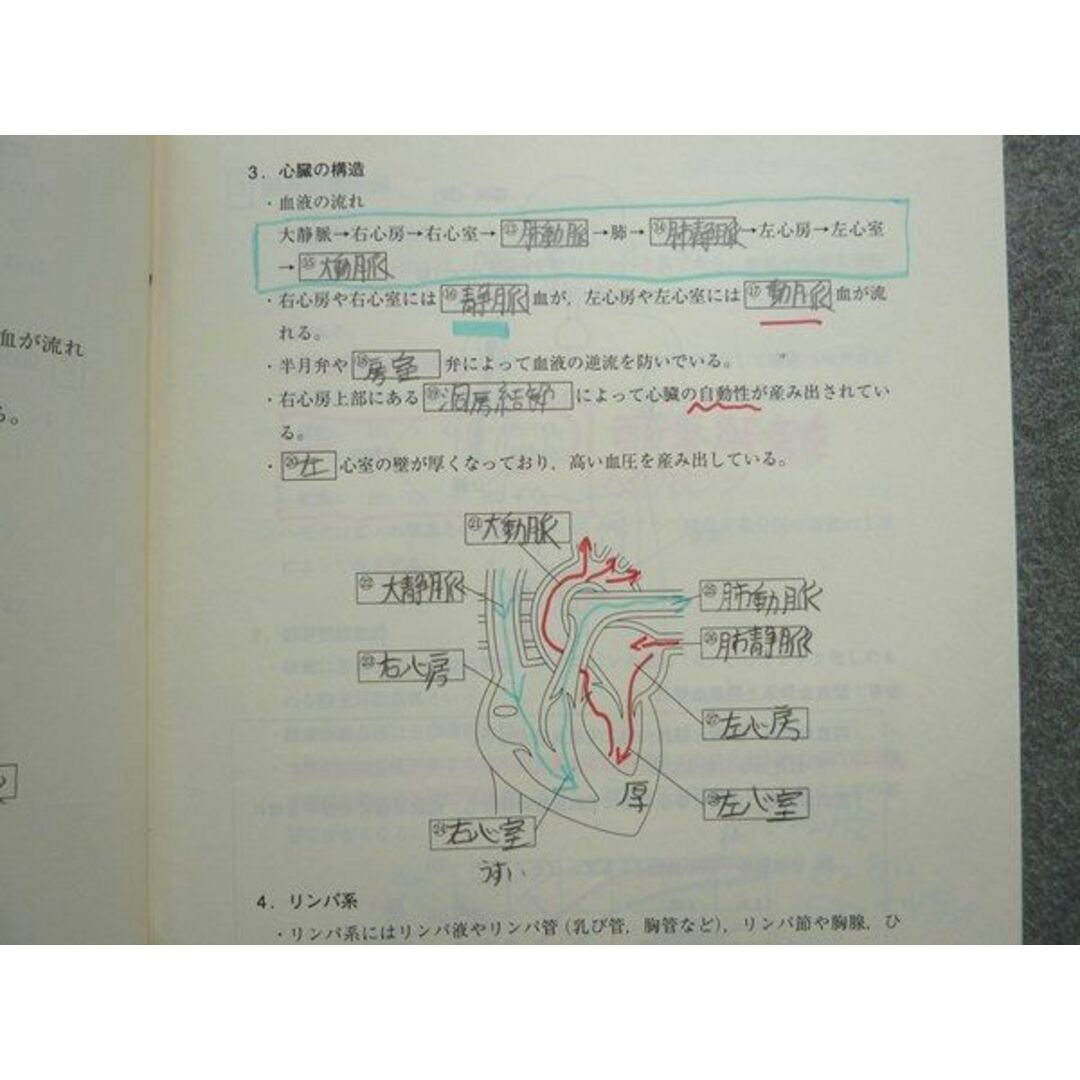 3．心臓の構造
・血液の流れ
大静脈→右心房→右心室→⑬肺動脈→肺→⑭肺静脈→左心房→左心室
→⑮大動脈
・右心房や右心室には⑯静脈血が，左心房や左心室には⑰動脈血が流
れる。
血が流れ
・半月弁や⑱房室弁によって血液の逆流を防いでいる。
・右心房上部にある⑲洞房結節によって心臓の自動性が産み出されてい
る。
る。
・⑳左心室の壁が厚くなっており，高い血圧を産み出している。
㉑大動脈
㉒大静脈
㉕肺動脈
㉖肺静脈
㉓右心房
㉗左心房
厚
㉘左心室
㉔右心室
うすい
4．リンパ系
・リンパ系にはリンパ液やリンパ管（乳び管，胸管など），リンパ節や胸腺，ひ